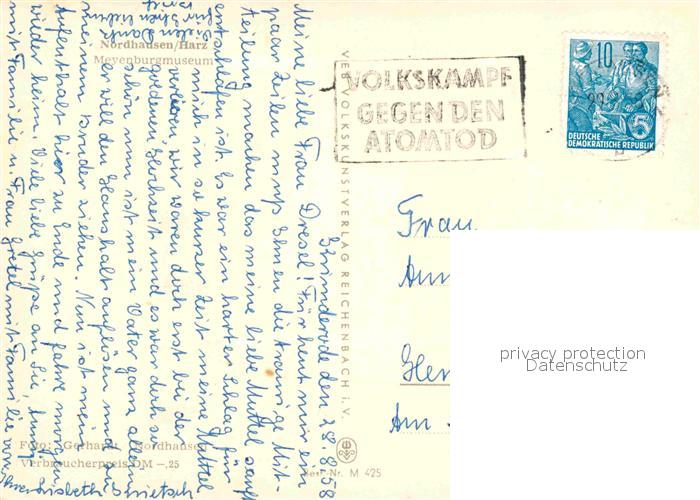 Nordhausen/Harz
Meyenburgmuseum
Bründerode den 28.8.58
Meine liebe Frau Dresel! Für heut nur ein
paar Zeilen muß Ihnen die traurige Mit-
teilung machen das meine liebe Muttel sanft
entschlafen ist. Es war ein harter Schlag für
mich in so kurzer Zeit meine Muttel
verloren wir waren doch erst bei der
goldenen Hochzeit und es war doch so
schön nun ist mein Vater ganz allein
er will den Haushalt auflösen und zu
meinem Bruder ziehen. Nun ist mein
Aufenthalt hier zu Ende und fahre morgen
wieder heim. Viele liebe Grüße an Sie,
mit Familie u. Frau Gretel mit Familie von
Ihrer Lisbeth
Vielen Dank
für Ihren lieben
VEB VOLKSKUNSTVERLAG REICHENBACH i. V.
VOLKSKAMPF
GEGEN DEN
ATOMTOD
10
5
DEUTSCHE
DEMOKRATISCHE REPUBLIK
Frau
Am
privacy protection
Datenschutz
Foto: Gerhardt, Nordhausen
Verbraucherpreis DM -,25
Best.-Nr. M 425